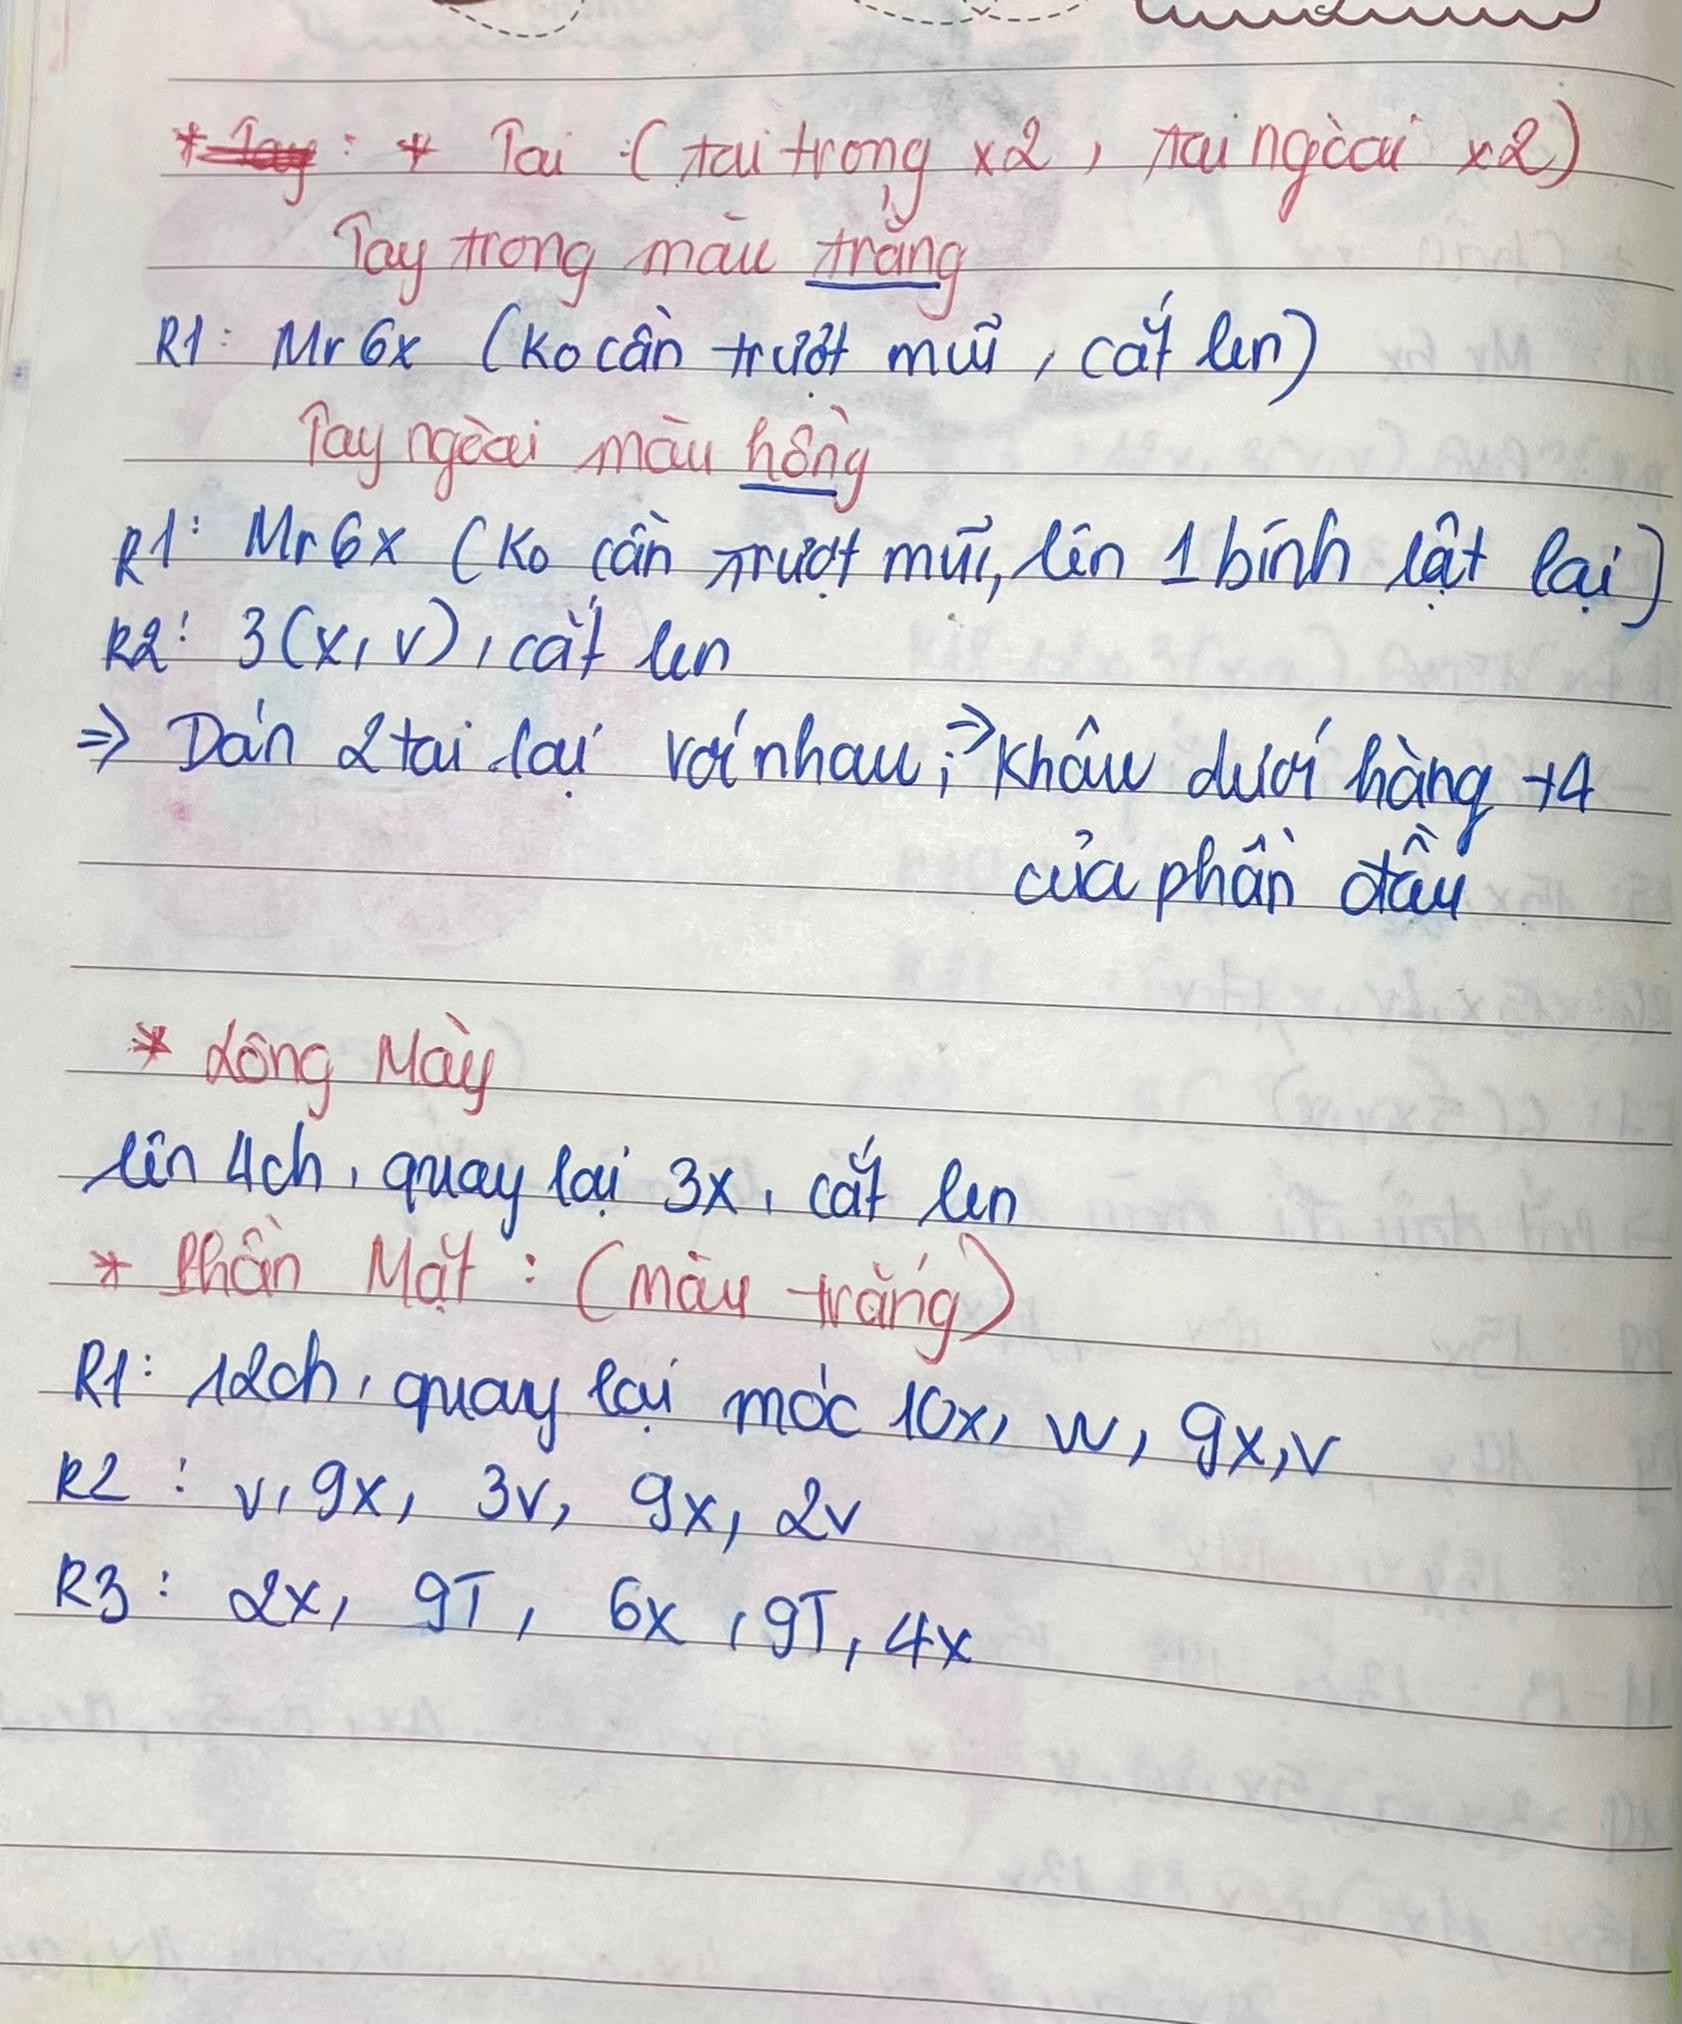 * Tay : * Tai : ( tai trong x2 , tai ngòai x2 )
Tay trong màu trắng
R1: Mr 6x (Ko cần trượt mũi , cắt len)
Tay ngòai màu hồng
R1: Mr 6x (Ko cần trượt mũi, lên 1 bính lật lại)
R2: 3(x, v) , cắt len
⇒ Dán 2 tai lại với nhau ; ⇒ Khâu dưới hàng +4
của phần đầu
* Lông Mày
lên 4ch , quay lại 3x , cắt len
* Phần Mặt : (màu trắng)
R1: 12ch , quay lại móc 10x, w, 9x, v
R2 : v, 9x, 3v, 9x, 2v
R3 : 2x, 9T, 6x , 9T, 4x